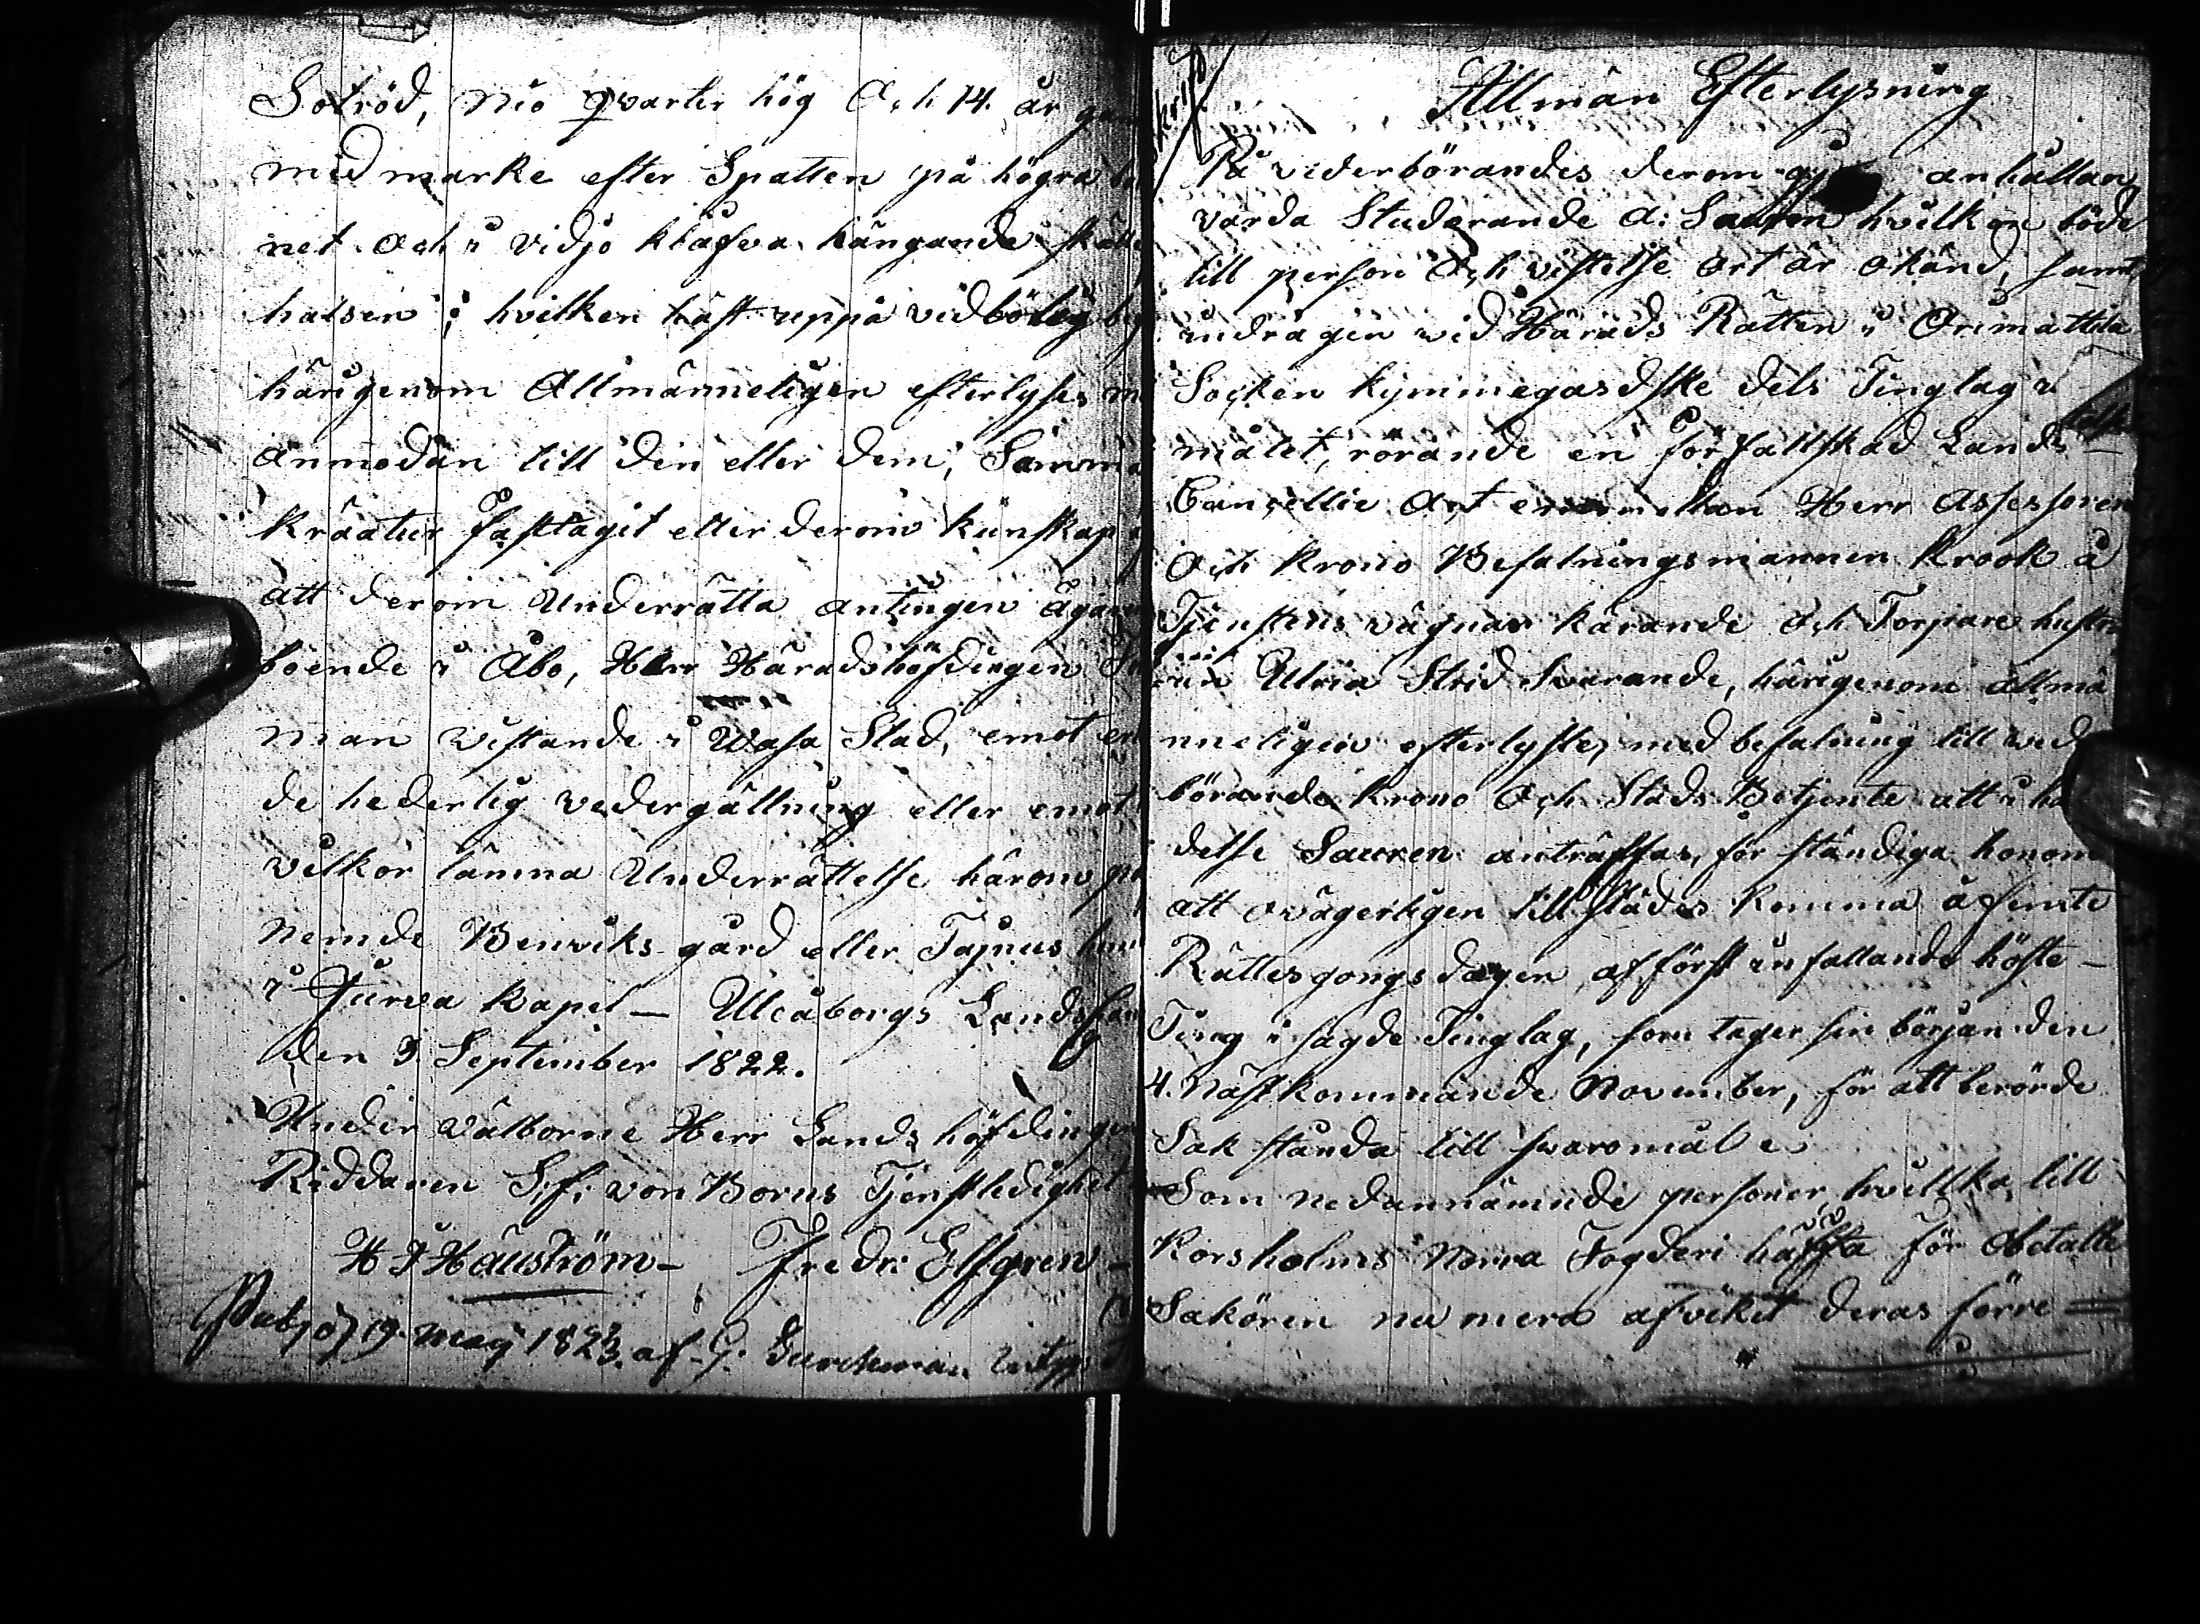 Sotröd, Nio qvarter hög Och 14. år
med marke efter Spatten på högra
net Och i vidjo klafva hängande skälla
halsen; hvilken häst uppå vedbörlig
härigenom Allmänneligen efterlyses
anmodan till den eller dem, Samma
kräatur fasttagit eller derom kunskap
att derom Underrätta antingen ägaren
boende i Åbo, Herr Häradshöfdingen
man vistande i Wasa Stad, emot
de hederlig vedergällning eller emot
vilkor lämna Underrättelse härom
nemde Benviks gård eller Tajnus
i Jurva Kapel — Uleåborgs Lands
den 3 September 1822.
Under Välborne Herr Lands höfdingen
Riddaren S: f: von Borns Tjenstledighet
H J Häuström — Fredr: Elfgren —
Publ: 19. Maij 1823. af
Allmän Efterlysning
På vederbörandes derom anhållan
varda Studerande A: Sauren hvilken både
till person Och vistelse ort är Okänd, samt
indragen vid Härads Rätten i Orimattila
Socken Kymmegardske dels Tinglag i
målet, rörande en förfallskad Lands —
Cancellie Act emellan Herr Assessoren
Och Krono Befalningsmannen Krook å
Tjenstens vägnar kärande Och Torpare hustrun
Ulrica Strid Svarande, härigenom allmä
nneligen efterlyste, med befalning till veder
börande Krono Och Stads Betjente att i hän
delse Sauren anträffas, för ständiga honom
att ovägerligen till städes komma å femte
Rättesgongs dagen af först infallande höste —
Ting i sagde Tinglag, som tager sin början den
4. Nästkommande November, för att berörde
Sak stånda till svaromål e
Som nedannämnde personer hvillka till
Korsholms Norra Fogderi häffta för Obetalte
Sakören nu mera afvikit deras förre —